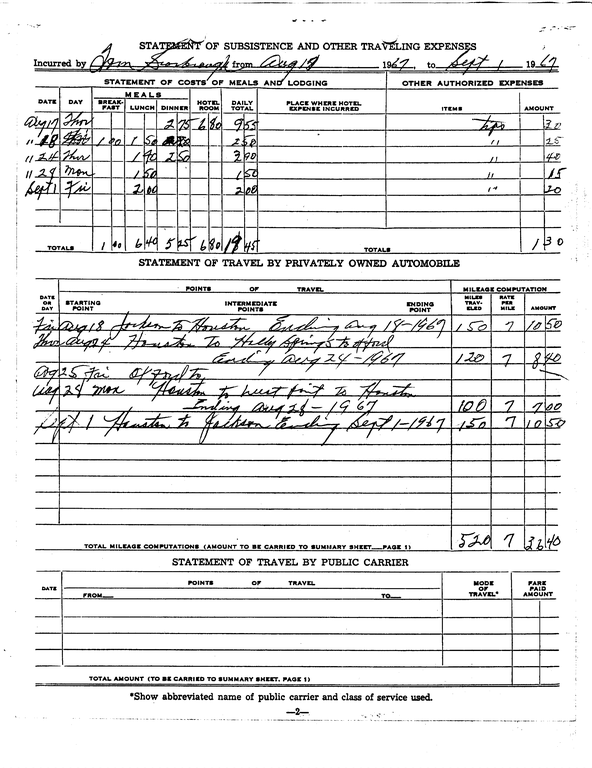 STATEMENT OF SUBSISTENCE AND OTHER TRAVELING EXPENSES
Incurred by Tom Scarbrough from Aug 17 1967, to Sept 1 1967
STATEMENT OF COSTS OF MEALS AND LODGING OTHER AUTHORIZED EXPENSES
MEALS
DATE DAY BREAK-FAST LUNCH DINNER HOTEL ROOM DAILY TOTAL PLACE WHERE HOTEL EXPENSE INCURRED ITEMS AMOUNT
Aug 17 Thur 2 75 6 80 9 55 tips 30
" 18 1 00 1 50 2 50 " 25
" 24 Thur 1 40 2 50 3 90 " 40
" 28 Mon 1 50 1 50 " 15
Sept 1 Fri 2 00 2 00 " 20
TOTALS 1 00 6 40 5 25 6 80 19 45 TOTALS 1 30
STATEMENT OF TRAVEL BY PRIVATELY OWNED AUTOMOBILE
POINTS OF TRAVEL MILEAGE COMPUTATION
DATE OR DAY STARTING POINT INTERMEDIATE POINTS ENDING POINT MILES TRAV-ELED RATE PER MILE AMOUNT
Fri Aug 18 Jackson to Houston Ending Aug 18-1967 150 7 10 50
Thur Aug 24 Houston to Holly Springs to Oxford
Ending Aug 24-1967 120 7 8 40
Aug 25 Fri Oxford to
Aug 28 Mon Houston to West Point to Houston
Ending Aug 28-1967 100 7 7 00
Sept 1 Houston to Jackson Ending Sept 1-1967 150 7 10 50
TOTAL MILEAGE COMPUTATIONS (AMOUNT TO BE CARRIED TO SUMMARY SHEET—PAGE 1) 520 7 36 40
STATEMENT OF TRAVEL BY PUBLIC CARRIER
DATE POINTS OF TRAVEL MODE OF TRAVEL* FARE PAID AMOUNT
FROM— TO—
TOTAL AMOUNT (TO BE CARRIED TO SUMMARY SHEET, PAGE 1)
*Show abbreviated name of public carrier and class of service used.
—2—